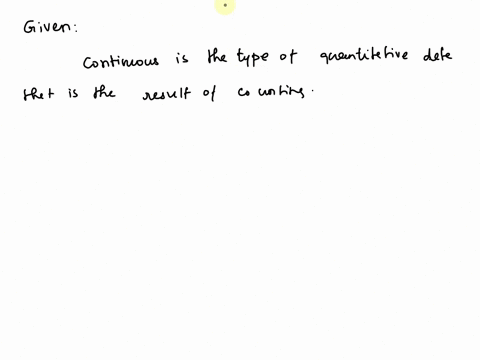 Given:
Continuous is the type of quantitetive dete
thet is the result of counting.